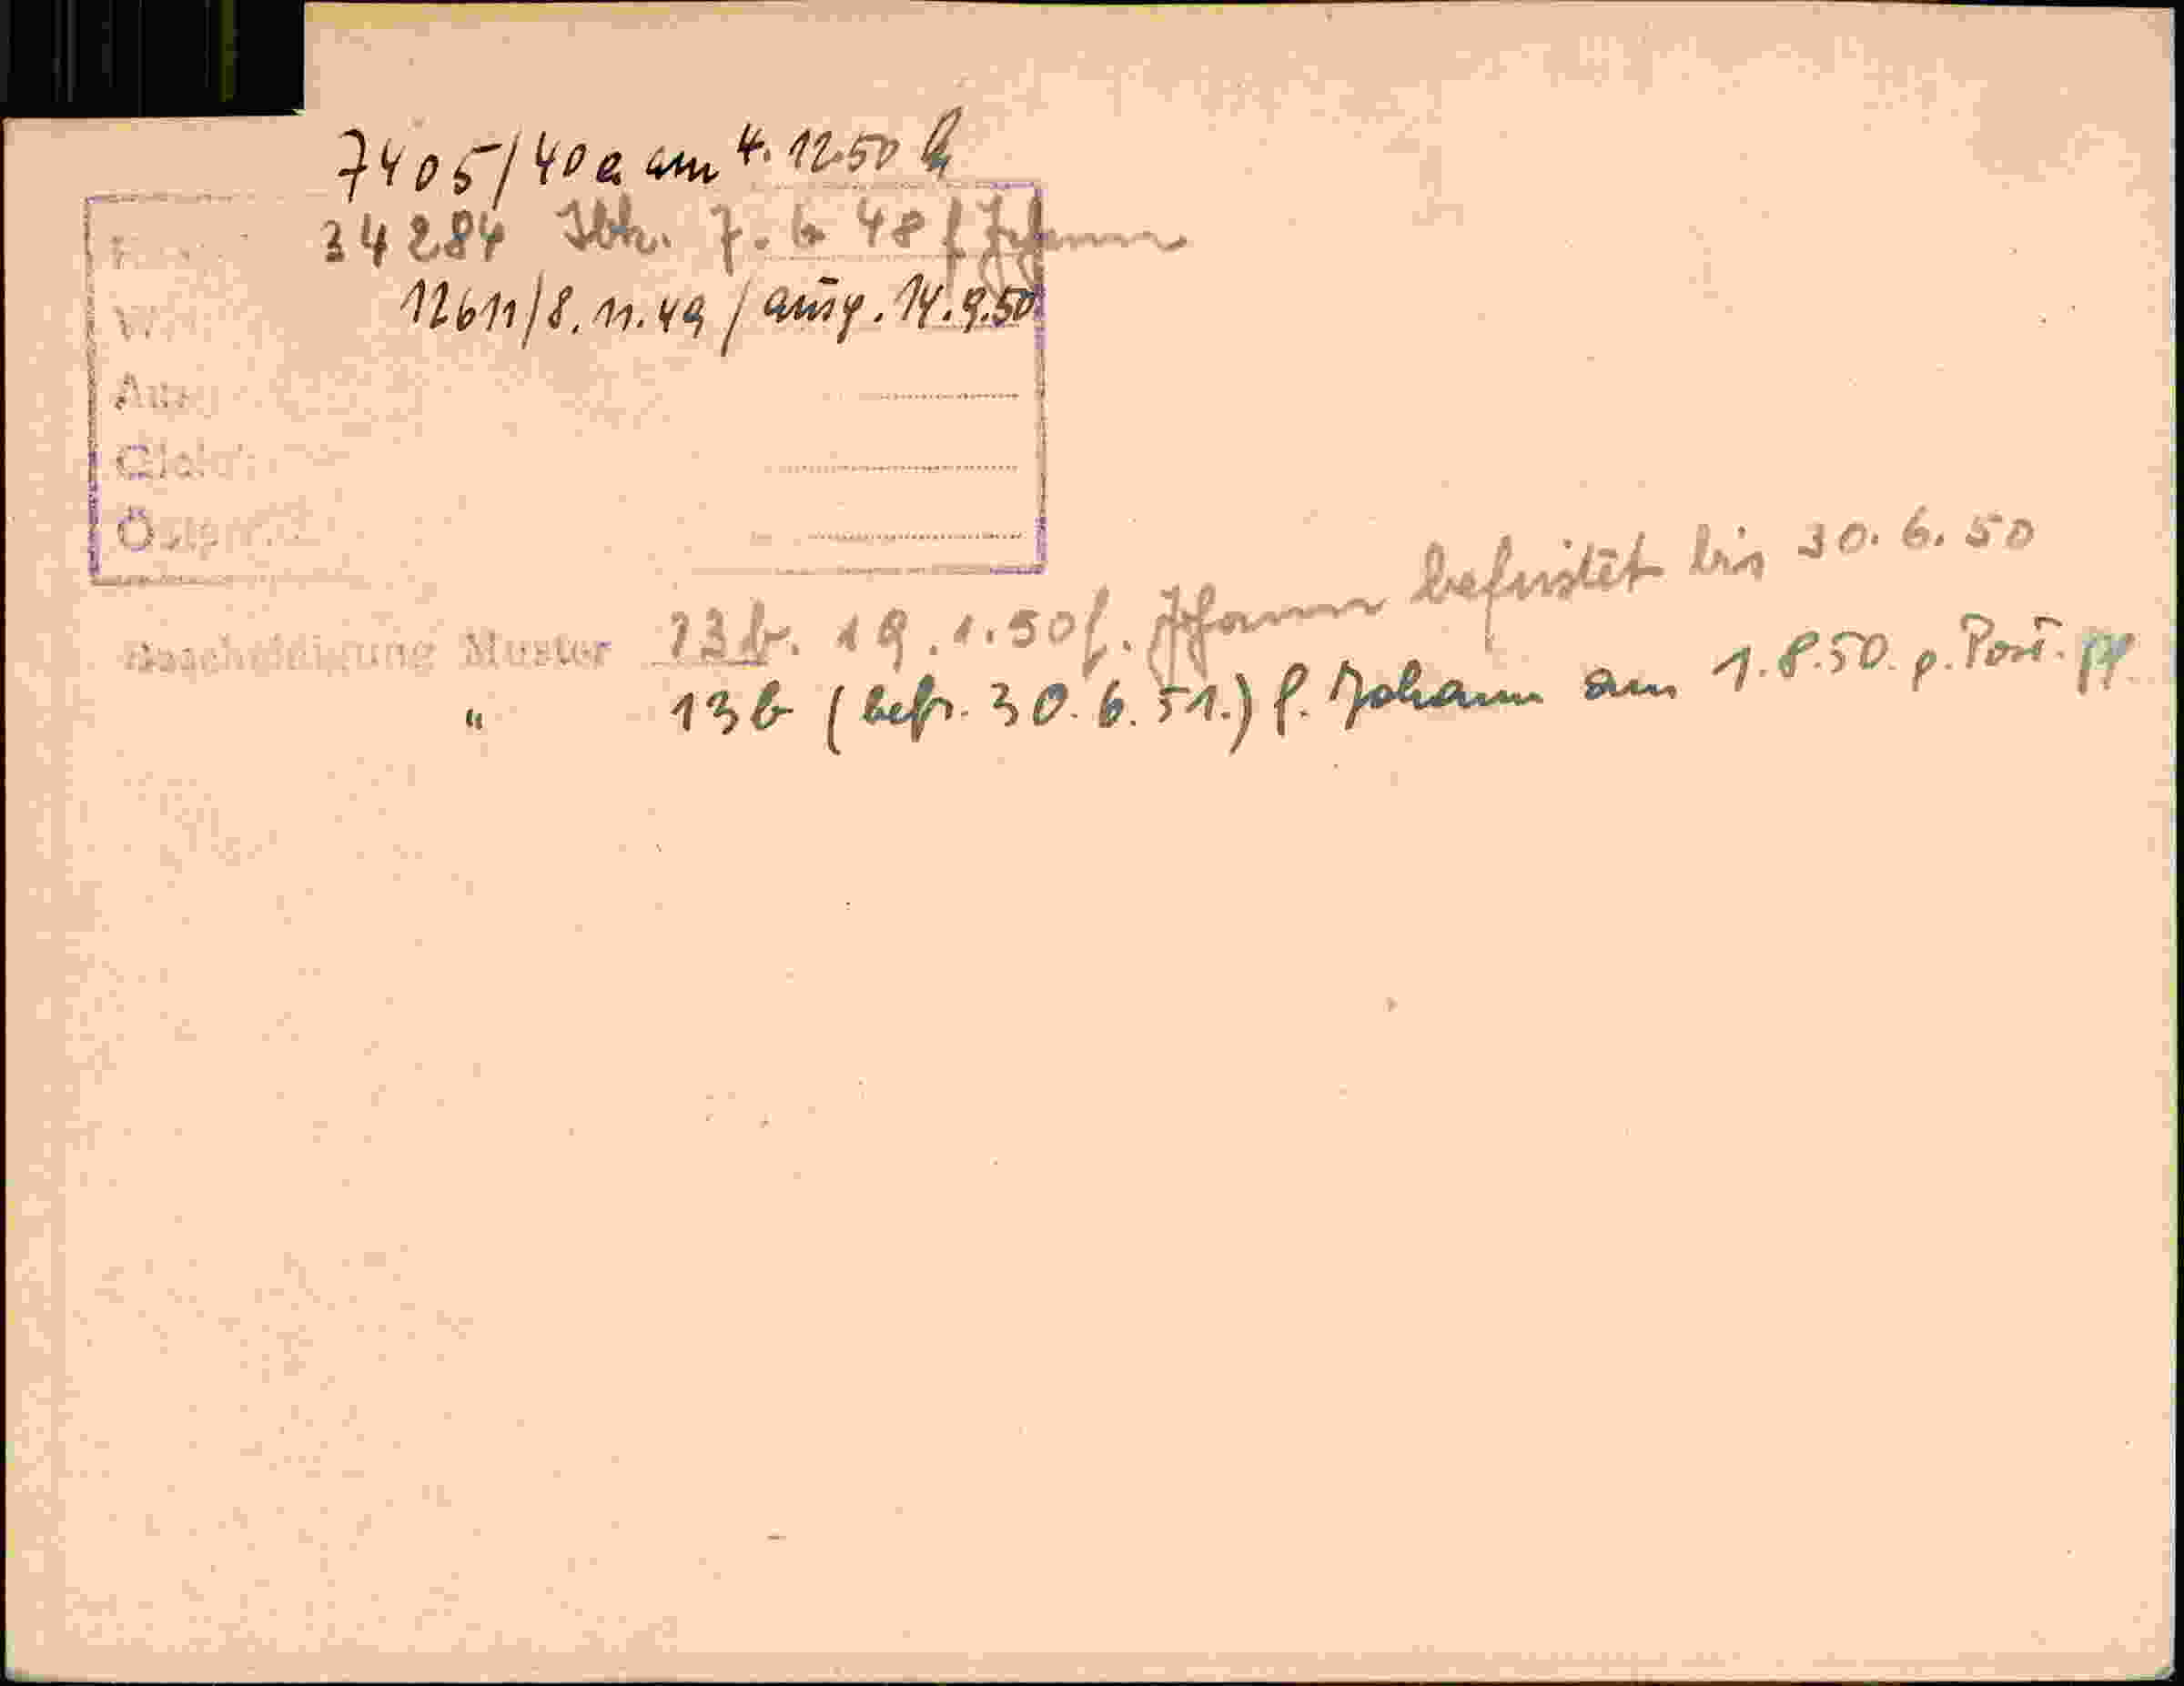 7405/40a am 4.12.50
34284 Ibk. 7.6 48 f Johann
12611/8.11.49/ausg. 14.9.50
Bescheinigung Muster 13b. 19.1.50 f. Johann befristet bis 30.6.50
" 13b (befr. 30.6.51.) f. Johann am 1.8.50. p. Post.